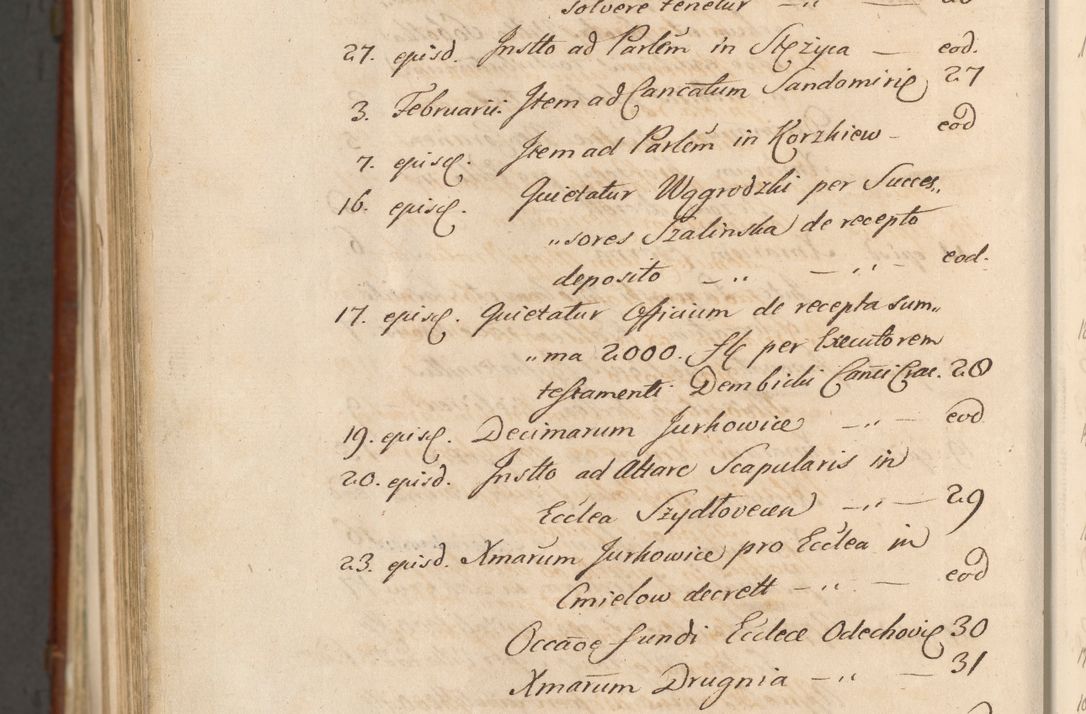 solvere tenetur — „ — 26
27. episd. Instto ad Parlem̃ in Stężyca — eod.
3. Februarii. Item ad Cancatum Sandomirię 27
7. episd. Item ad Parlem̃ in Korzkiew — eod
16. episd. Quietatur Wggrodzki per Succes„
„sores Szalinska de recepto
deposito — „ — „ — eod.
17. episd. Quietatur Officium de recepta sum„
„ma 2000. fl per Executorem
testamenti Dembicki Canci Crac. 28
19. episd. Decimarum Jurkowice — „ — eod
20. episd. Instto ad Altare Scapularis in
Ecclea Szydłovecen — „ — 29
23. episd. Xmarum Jurkowice pro Ecclea in
Cmielow decrett — „ — eod
Occãoę fundi Ecclece Odechovię 30
Xmarum Drugnia — „ — 31